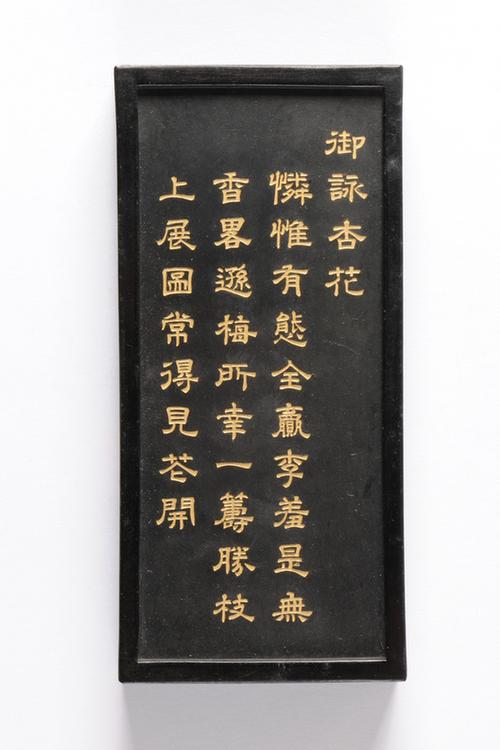 御詠杏花
憐惟有態全贏李羞是無
香畧遜梅所幸一籌勝枝
上展圖常得見花開